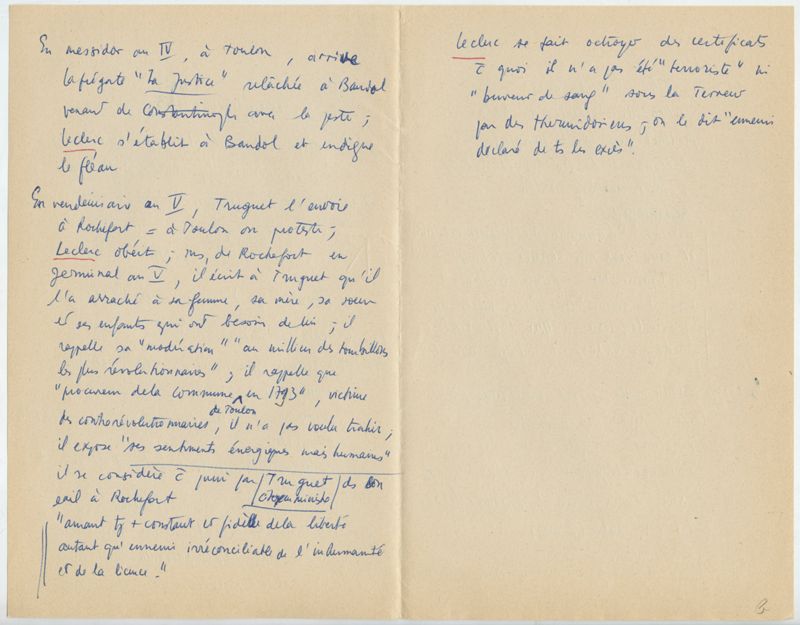 En messidor an IV, à Toulon, arrive
la frégate "La Justice" relâchée à Bandol
venant de Constantinople avec la peste ;
Leclerc s'établit à Bandol et endigue
le fléau
En vendémiaire an V, Truguet l'envoie
à Rochefort = à Toulon on proteste ;
Leclerc obéit ; ms, de Rochefort en
germinal an V, il écrit à Truguet qu'il
l'a arraché à sa femme, sa mère, sa sœur
et ses enfants qui ont besoin de lui ; il
rappelle sa "modération" "au milieu des tourbillons
les plus révolutionnaires" ; il rappelle que
"procureur de la Commune de Toulon en 1793", victime
des contrerévolutionnaires, il n'a pas voulu trahir ;
il expose "ses sentiments énergiques mais humains"
il se considère c̄ puni par Truguet ds son
exil à Rochefort
"amant tj + constant et fidèle de la liberté
autant qu'ennemi irréconciliable de l'inhumanité
et de la licence."
Leclerc se fait octroyer des certificats
c̄ quoi il n'a pas été "terroriste" ni
"buveur de sang" sous la Terreur
par des thermidoriens ; on le dit "ennemi
déclaré de ts les excès".